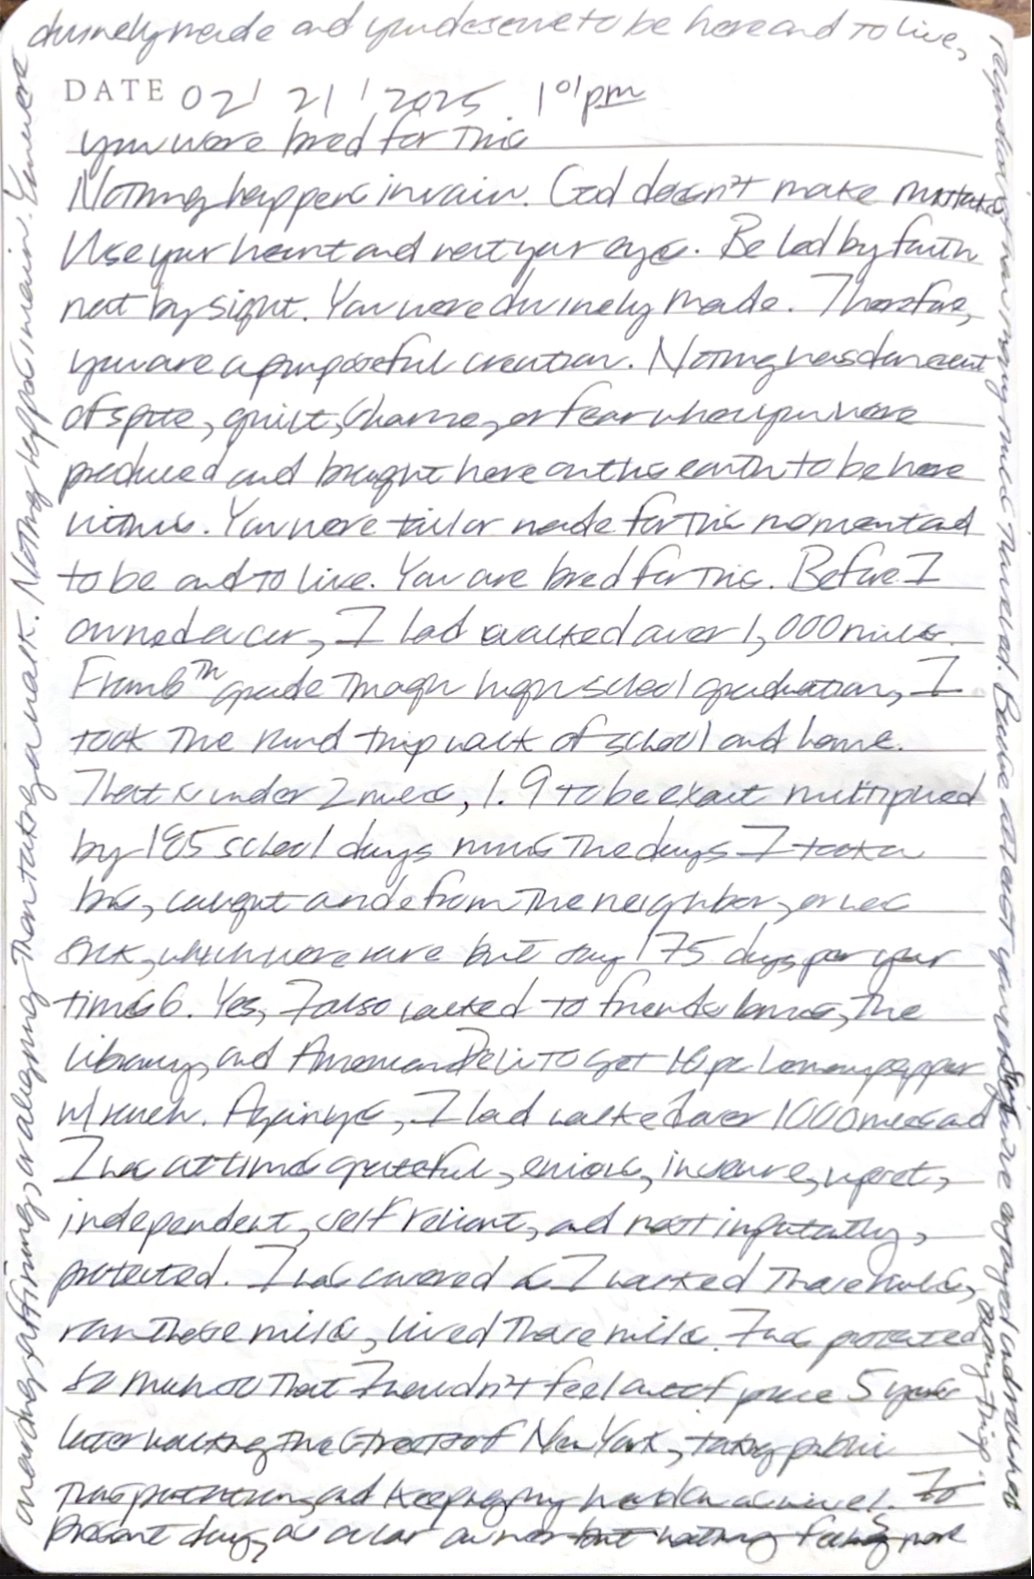 DATE 02 / 21 / 2025 1:01pm
you were bred for this
Nothing happens in vain. God doesn't make mistakes
Use your heart and rest your eyes. Be led by faith
not by sight. You were divinely made. Therefore,
you are a purposeful creation. Nothing was done out
of spite, guilt, shame, or fear when you were
produced and brought here on this earth to be here
with us. You were tailor made for this moment and
to be and to live. You are bred for this. Before I
owned a car, I had walked over 1,000 miles.
From 6th grade through high school graduation, I
took the round trip walk of school and home.
That is under 2 miles, 1.9 to be exact multiplied
by 185 school days minus the days I took a
bus, caught a ride from the neighbor, or was
sick, which were rare but say 175 days per year
times 6. Yes, I also walked to friends homes, the
library, and American Deli to get 10 pc lemon pepper
w/ ranch. Again yes, I had walked over 1000 miles and
I was at times grateful, envious, insecure, upset,
independent, self reliant, and most importantly,
protected. I was covered as I walked those miles,
ran those miles, lived those miles. I was protected
so much so that I wouldn't feel out of place 5 years
later walking the streets of New York, taking public
transportation, and keeping my head on a swivel. To
present day, as a car owner but nothing feels more
meditating, affirming, or aligning than taking a walk. Nothing happens in vain. You were
divinely made and you deserve to be here and to live,
regardless of how many miles I have led. Because at least you
engaged and reached
along things.